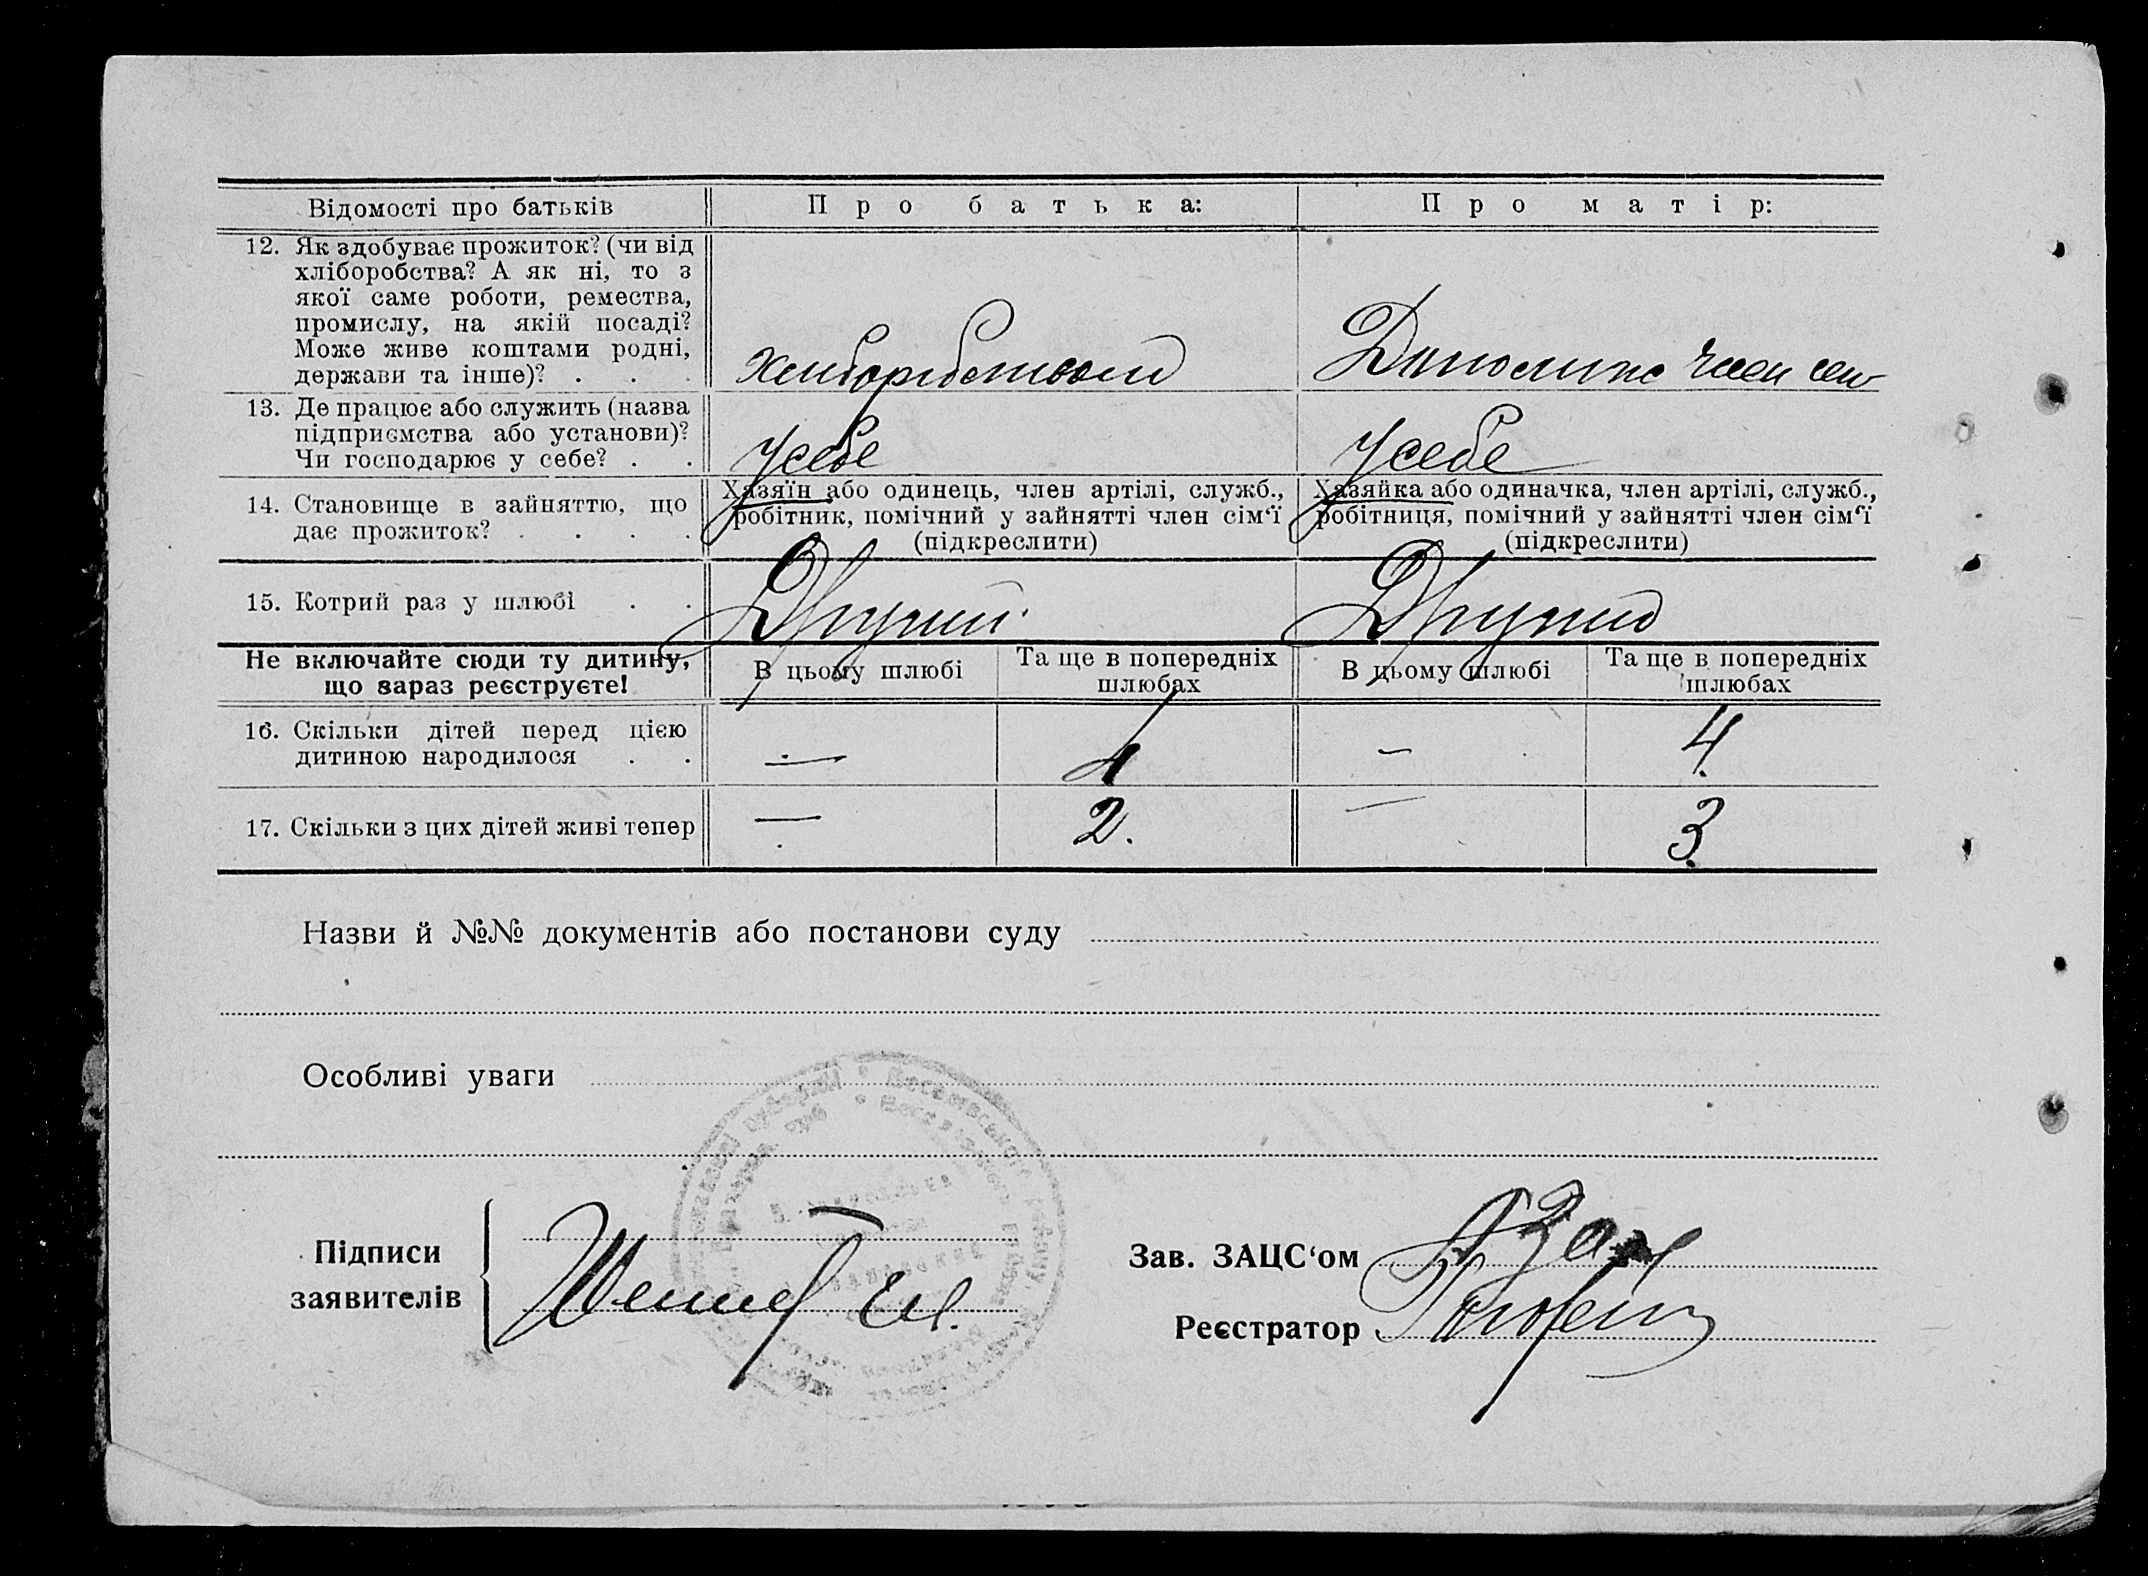 Відомості про батьків
Про батька:
Про матір:
12. Як здобуває прожиток? (чи від
хліборобства? А як ні, то з
якої саме роботи, ремества,
промислу, на якій посаді?
Може живе коштами родні,
держави та інше)? . . .
13. Де працює або служить (назва
підприємства або установи)?
Чи господарює у себе? . .
У себе
У себе
14. Становище в зайняттю, що
дає прожиток? . . . .
Хазяїн або одинець, член артілі, служб.,
робітник, помічний у зайнятті член сім‘ї
(підкреслити)
Хазяйка або одиначка, член артілі, служб.,
робітниця, помічний у зайнятті член сім‘ї
(підкреслити)
15. Котрий раз у шлюбі . .
Другий
Другий
Не включайте сюди ту дитину,
що зараз реєструєте!
В цьому шлюбі
Та ще в попередніх
шлюбах
В цьому шлюбі
Та ще в попередніх
шлюбах
16. Скільки дітей перед цією
дитиною народилося . .
—
4
—
4.
17. Скільки з цих дітей живі тепер
—
2.
—
3.
Назви й №№ документів або постанови суду
Особливі уваги
Підписи
заявителів
Зав. ЗАЦС‘ом
Реєстратор